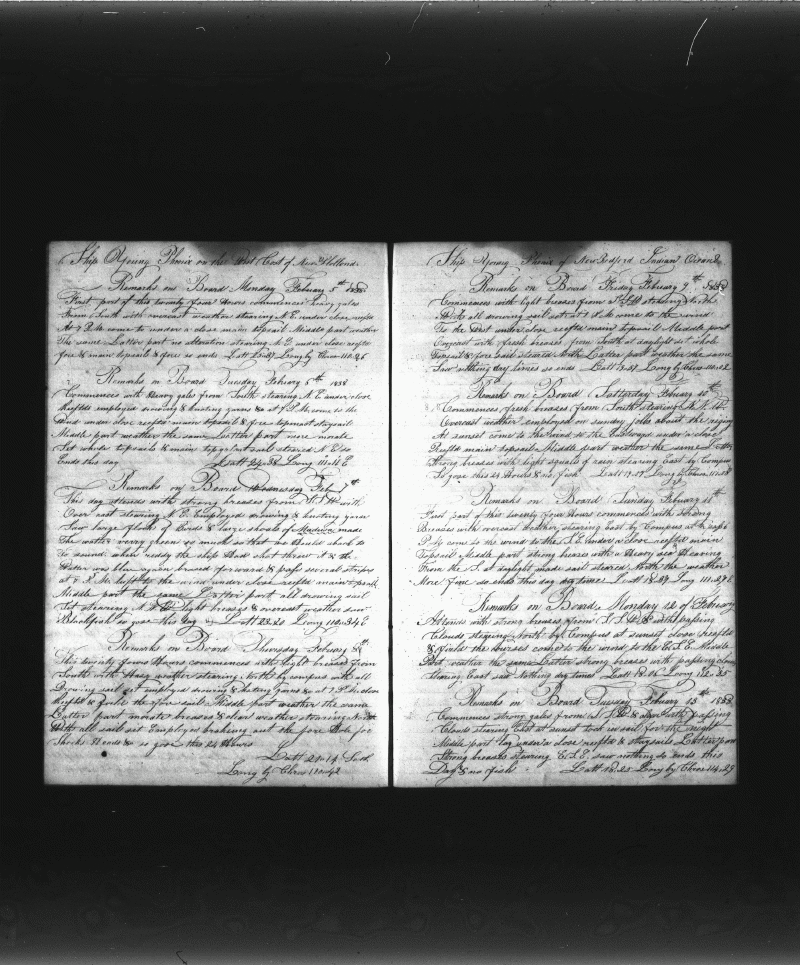 Ship Young Phenix on the West Cost of New Hollond
Remarks on Board Monday Febuary 5th 1838
First part of this twenty four Hours commences heavy gales
from South with overcast weather stearing N E under close reefts
At 7 P M come to under a close main topsail Middle part weather
The same Latter part no alteration stearing N. E under close reefts
fore & main topsails & fore so ends Latt 25.87 Long by Chro 110.26
Remarks on Board Tuesday Febuary 6th 1838
Commences with Heavy gales from South stearing N. E under close
Reeftds employed sowing & knoting yarns at 7 P M come to the
Wind under close reefts main topsail & fore topmast staysail
Middle part weather the same Latter part more morate
Set whole topsails & main topgalant sail steared N E so
Ends this day Latt 24.38 Long 111.11 E
Remarks on Board Wednesday Feb 7th
This day attends with strong breases from S. with
Over cast stearing N. E. Employed sowing & knoting yarn
Saw large flock of Birds & large shoals of made
The water verry green so much so that we Should about to
To sound when reddy the ship Had shot threw it & the
Water was blew again braced forward & pass several stripes
at 7 P. M. Luft to the wind under close reefts main topsail
Middle part the same Latter part all drowing sail
Set stearing N. light breases & overcast weather saw
Blackfish so goes this day Latt 23.20 Long 110.34 E
Remarks on Board Thursday Febuary 8th
This twenty fowr Hours commences with light breases from
South with Hasy weather stearing North by compus with all
Drowing sail set employed sowing & knoting yarns & at 7 P M close
Reeft & furle the fore sail Middle part weather the same
Latter part morate breases & clear weather stearing North
With all sail set Employed braking out the fore Hole for
Shooks Heads & so goes the 24 Hours
Latt 21.14 South
Long by Chro 110.42
Ship Young Phenix of New Bedford Indian Ocean
Remarks on Board Friday Febuary 9th 1838
Commences with light breases from stearing to the
all drowing sail set at 7 P. M come to the wind
To the East under close reefts main topsail Middle part
Overcast with fresh breases from South at daylight set whole
Topsail & fore sail steared North Latter part weather the same
Saw nothing day times so ends Latt 19.87 Long by Chro 111.02
Remark on Board Satturday Febuary 10th
Commences fresh breases from South stearing N. N.
Overcast weather employed on sundry jobs about the riging
At sunset come to the wind to the Eastward under a close
Reefts main topsail Middle part weather the same Latter
Strong breases with light squals of rain stearing East by Compus
So goes this 24 Hours & no fish Latt 19.07 Long by Chro 111.03
Remarks on Board Sunday Febuary 11th
First part of this twenty fowr Hours commences with strong
Breases with overcast weather stearing East by Compus at 6
P M come to the wind to the S. E. under a close reefts main
Topsail Middle part strong breases with a Heavy sea Heaving
From the S. at daylight made sail steared North the weather
More fine so ends this day day times Latt 18.89 Long 111.27 E
Remarks on Board Monday 12 of Febuary
Attends with strong breases from S. & with passing
Clouds stearing North by Compus at sunset close reefts
& furle the courses come to the wind to the E. S. E. Middle
Part weather the same Latter strong breases with passing clouds
Stearing East saw Nothing day times Latt 18.06 Long 112.35
Remarks on Board Tuesday Febuary 13th 1838
Commences strong gales from S. & passing
Clouds stearing East at sunset took in sail for the night
Middle part lay under a close reefts & staysails Latter part
Strong breases stearing E. S. E. saw nothing so ends this
Day & no fish Latt 18.25 Long by Chro 114.29